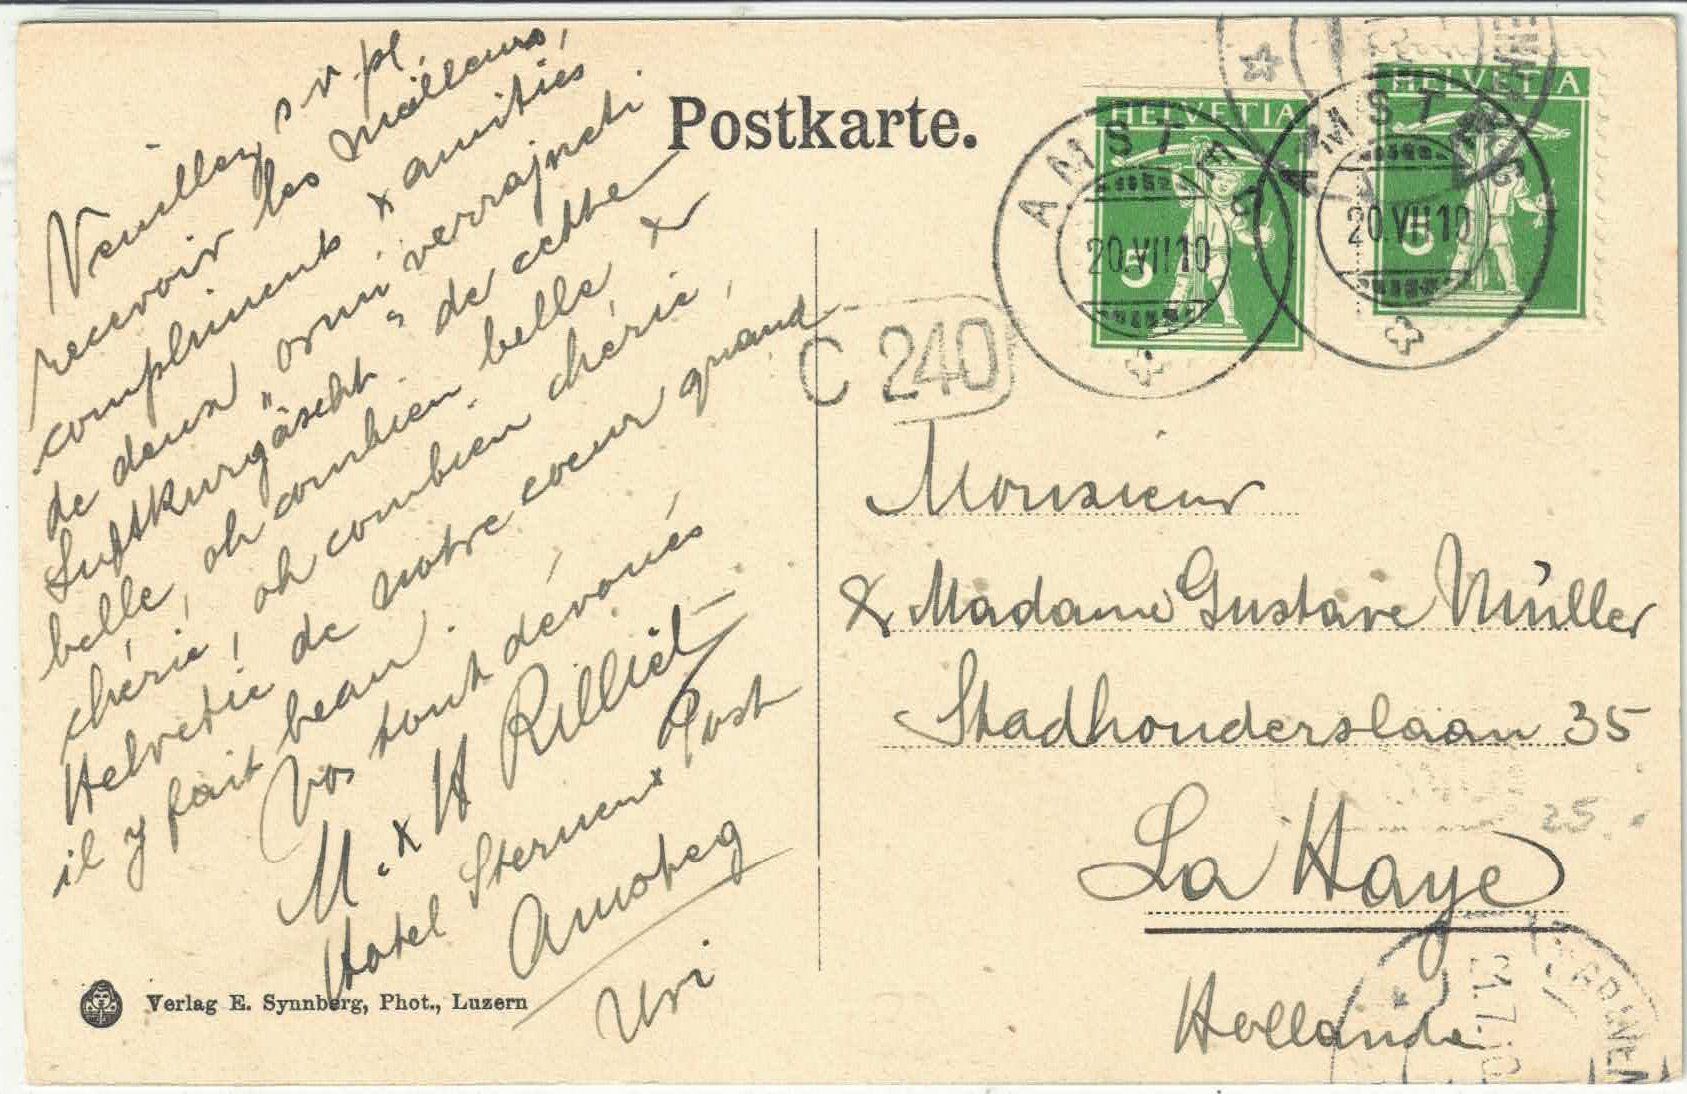 Postkarte.
Veuillez s v pl,
recevoir les meilleurs,
compliments & amitiés
de deux "
Luftkurgäscht" de cette
belle, oh combien belle &
chérie, oh combien chérie,
Helvetie de notre coeur quand
il y fait beau.
Vos tout dévoués
M. & H Rilliet
Hotel Sternen & Post
Amsteg
Uri
Verlag E. Synnberg, Phot., Luzern
HELVETIA
5
HELVETIA
5
AMSTEG
20.VII.10
AMSTEG
20.VII.10
C 240
Monsieur
& Madame Gustave Müller
Stadhouderslaan 35
La Haye
Hollande
25.
21.7.10